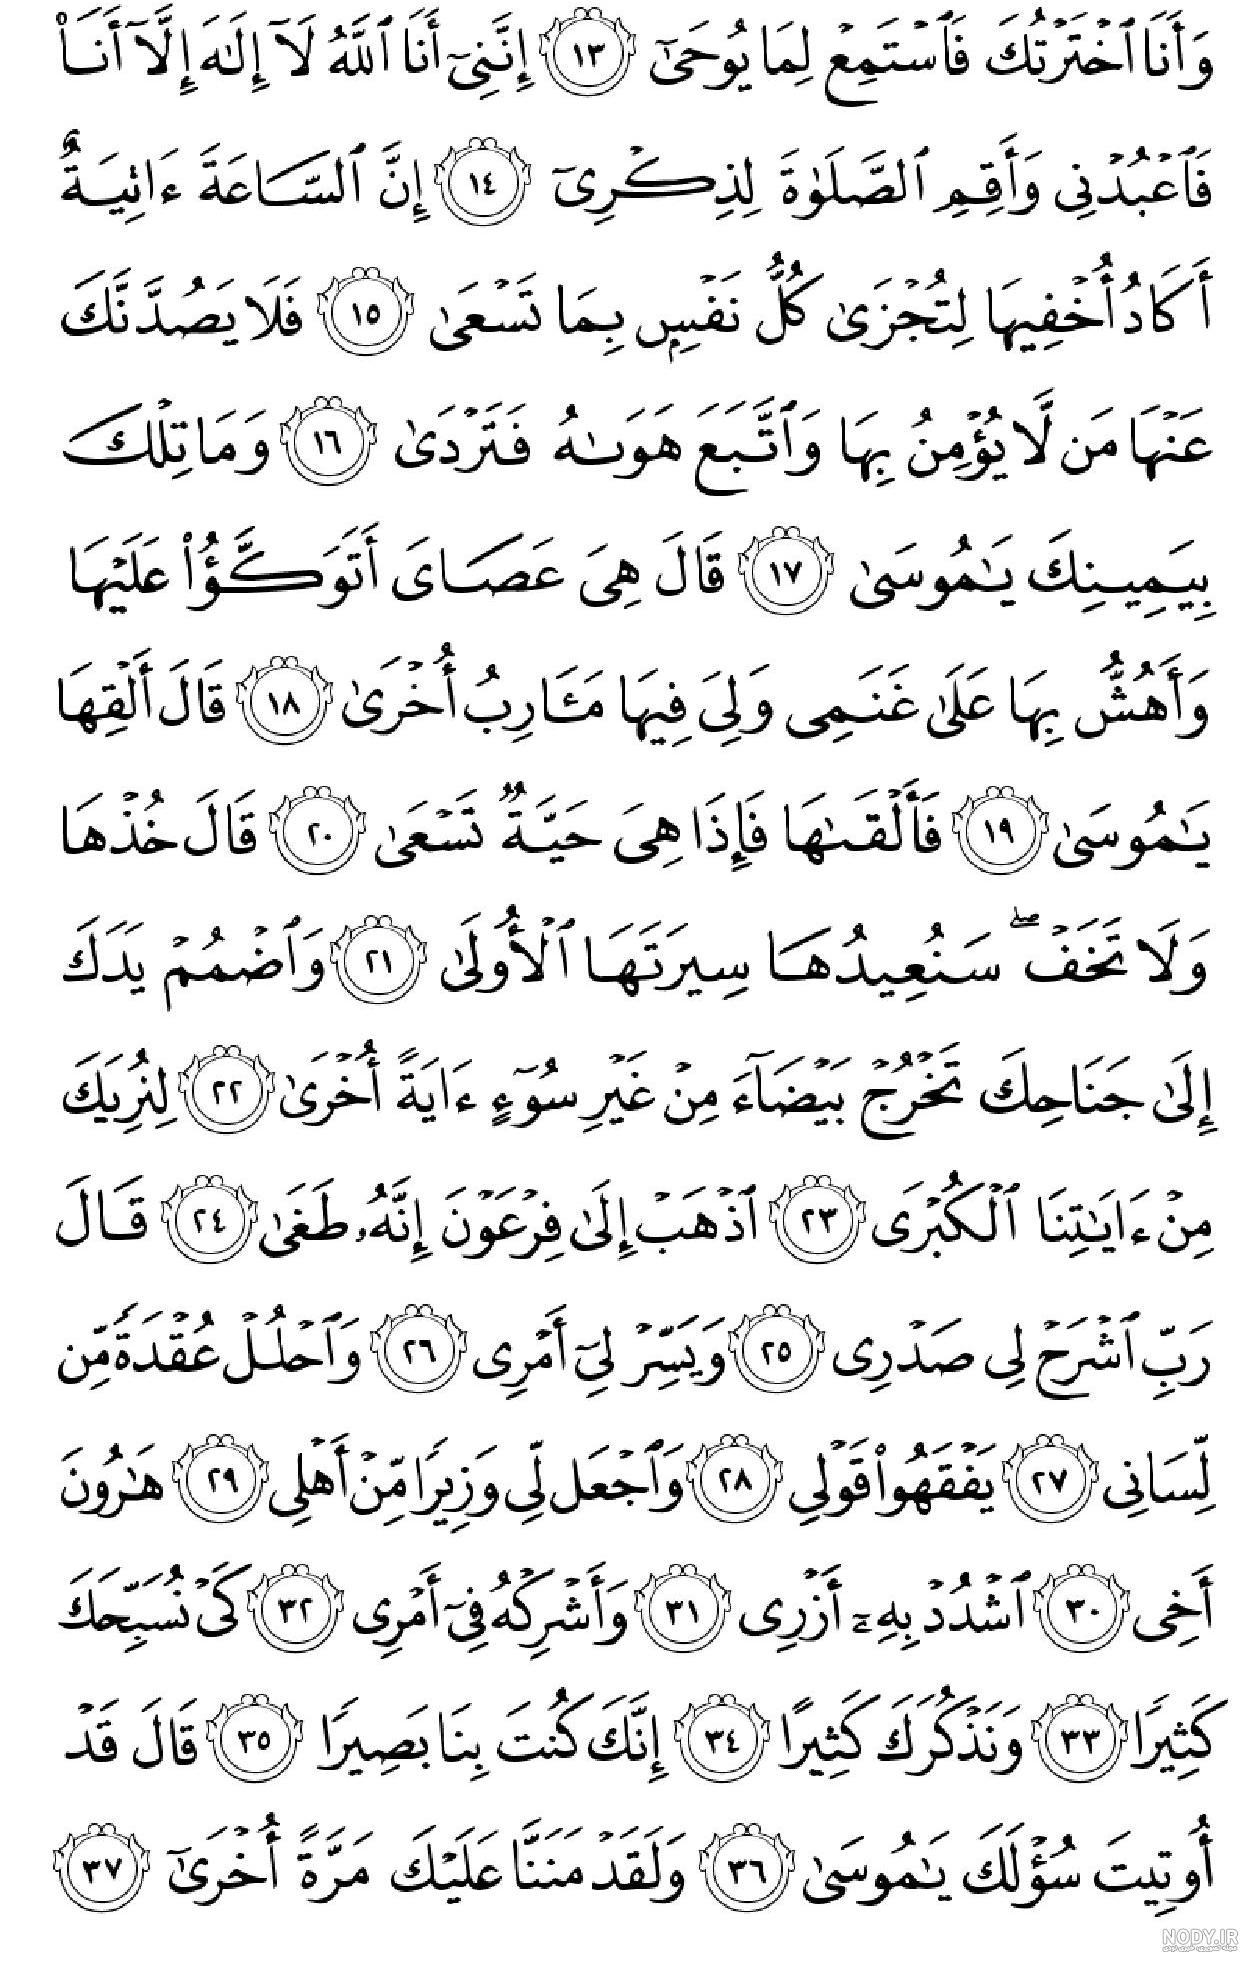 وَأَنَا ٱخْتَرْتُكَ فَٱسْتَمِعْ لِمَا يُوحَىٰٓ ١٣ إِنَّنِىٓ أَنَا ٱللَّهُ لَآ إِلَٰهَ إِلَّآ أَنَا۠
فَٱعْبُدْنِى وَأَقِمِ ٱلصَّلَوٰةَ لِذِكْرِىٓ ١٤ إِنَّ ٱلسَّاعَةَ ءَاتِيَةٌ
أَكَادُ أُخْفِيهَا لِتُجْزَىٰ كُلُّ نَفْسٍۭ بِمَا تَسْعَىٰ ١٥ فَلَا يَصُدَّنَّكَ
عَنْهَا مَن لَّا يُؤْمِنُ بِهَا وَٱتَّبَعَ هَوَىٰهُ فَتَرْدَىٰ ١٦ وَمَا تِلْكَ
بِيَمِينِكَ يَٰمُوسَىٰ ١٧ قَالَ هِىَ عَصَاىَ أَتَوَكَّؤُا۟ عَلَيْهَا
وَأَهُشُّ بِهَا عَلَىٰ غَنَمِى وَلِىَ فِيهَا مَـَٔارِبُ أُخْرَىٰ ١٨ قَالَ أَلْقِهَا
يَٰمُوسَىٰ ١٩ فَأَلْقَىٰهَا فَإِذَا هِىَ حَيَّةٌ تَسْعَىٰ ٢٠ قَالَ خُذْهَا
وَلَا تَخَفْ ۖ سَنُعِيدُهَا سِيرَتَهَا ٱلْأُولَىٰ ٢١ وَٱضْمُمْ يَدَكَ
إِلَىٰ جَنَاحِكَ تَخْرُجْ بَيْضَآءَ مِنْ غَيْرِ سُوٓءٍ ءَايَةً أُخْرَىٰ ٢٢ لِنُرِيَكَ
مِنْ ءَايَٰتِنَا ٱلْكُبْرَى ٢٣ ٱذْهَبْ إِلَىٰ فِرْعَوْنَ إِنَّهُۥ طَغَىٰ ٢٤ قَالَ
رَبِّ ٱشْرَحْ لِى صَدْرِى ٢٥ وَيَسِّرْ لِىٓ أَمْرِى ٢٦ وَٱحْلُلْ عُقْدَةً مِّن
لِّسَانِى ٢٧ يَفْقَهُوا۟ قَوْلِى ٢٨ وَٱجْعَل لِّى وَزِيرًا مِّنْ أَهْلِى ٢٩ هَٰرُونَ
أَخِى ٣٠ ٱشْدُدْ بِهِۦٓ أَزْرِى ٣١ وَأَشْرِكْهُ فِىٓ أَمْرِى ٣٢ كَىْ نُسَبِّحَكَ
كَثِيرًا ٣٣ وَنَذْكُرَكَ كَثِيرًا ٣٤ إِنَّكَ كُنتَ بِنَا بَصِيرًا ٣٥ قَالَ قَدْ
أُوتِيتَ سُؤْلَكَ يَٰمُوسَىٰ ٣٦ وَلَقَدْ مَنَنَّا عَلَيْكَ مَرَّةً أُخْرَىٰٓ ٣٧
NODY.IR